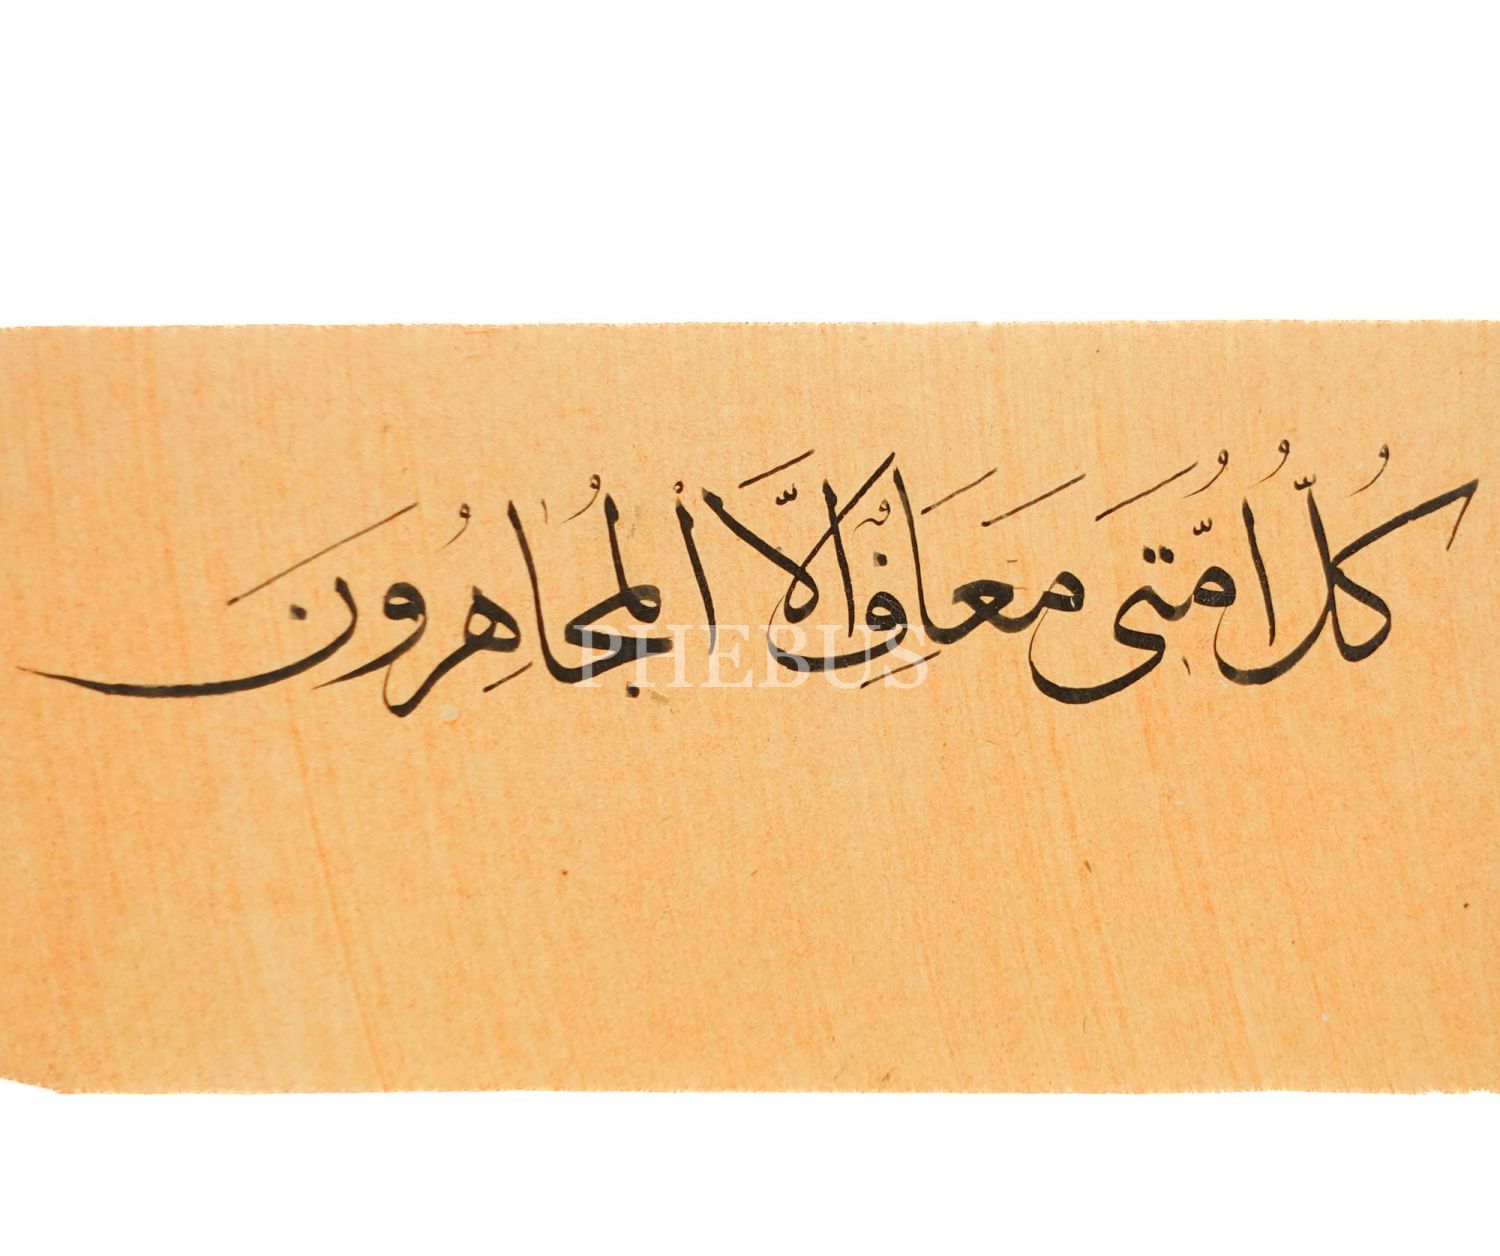 كُلُّ اُمَّتِى مَعَافٍ اِلَّا الْمُجَاهِرُونَ
PHEBUS